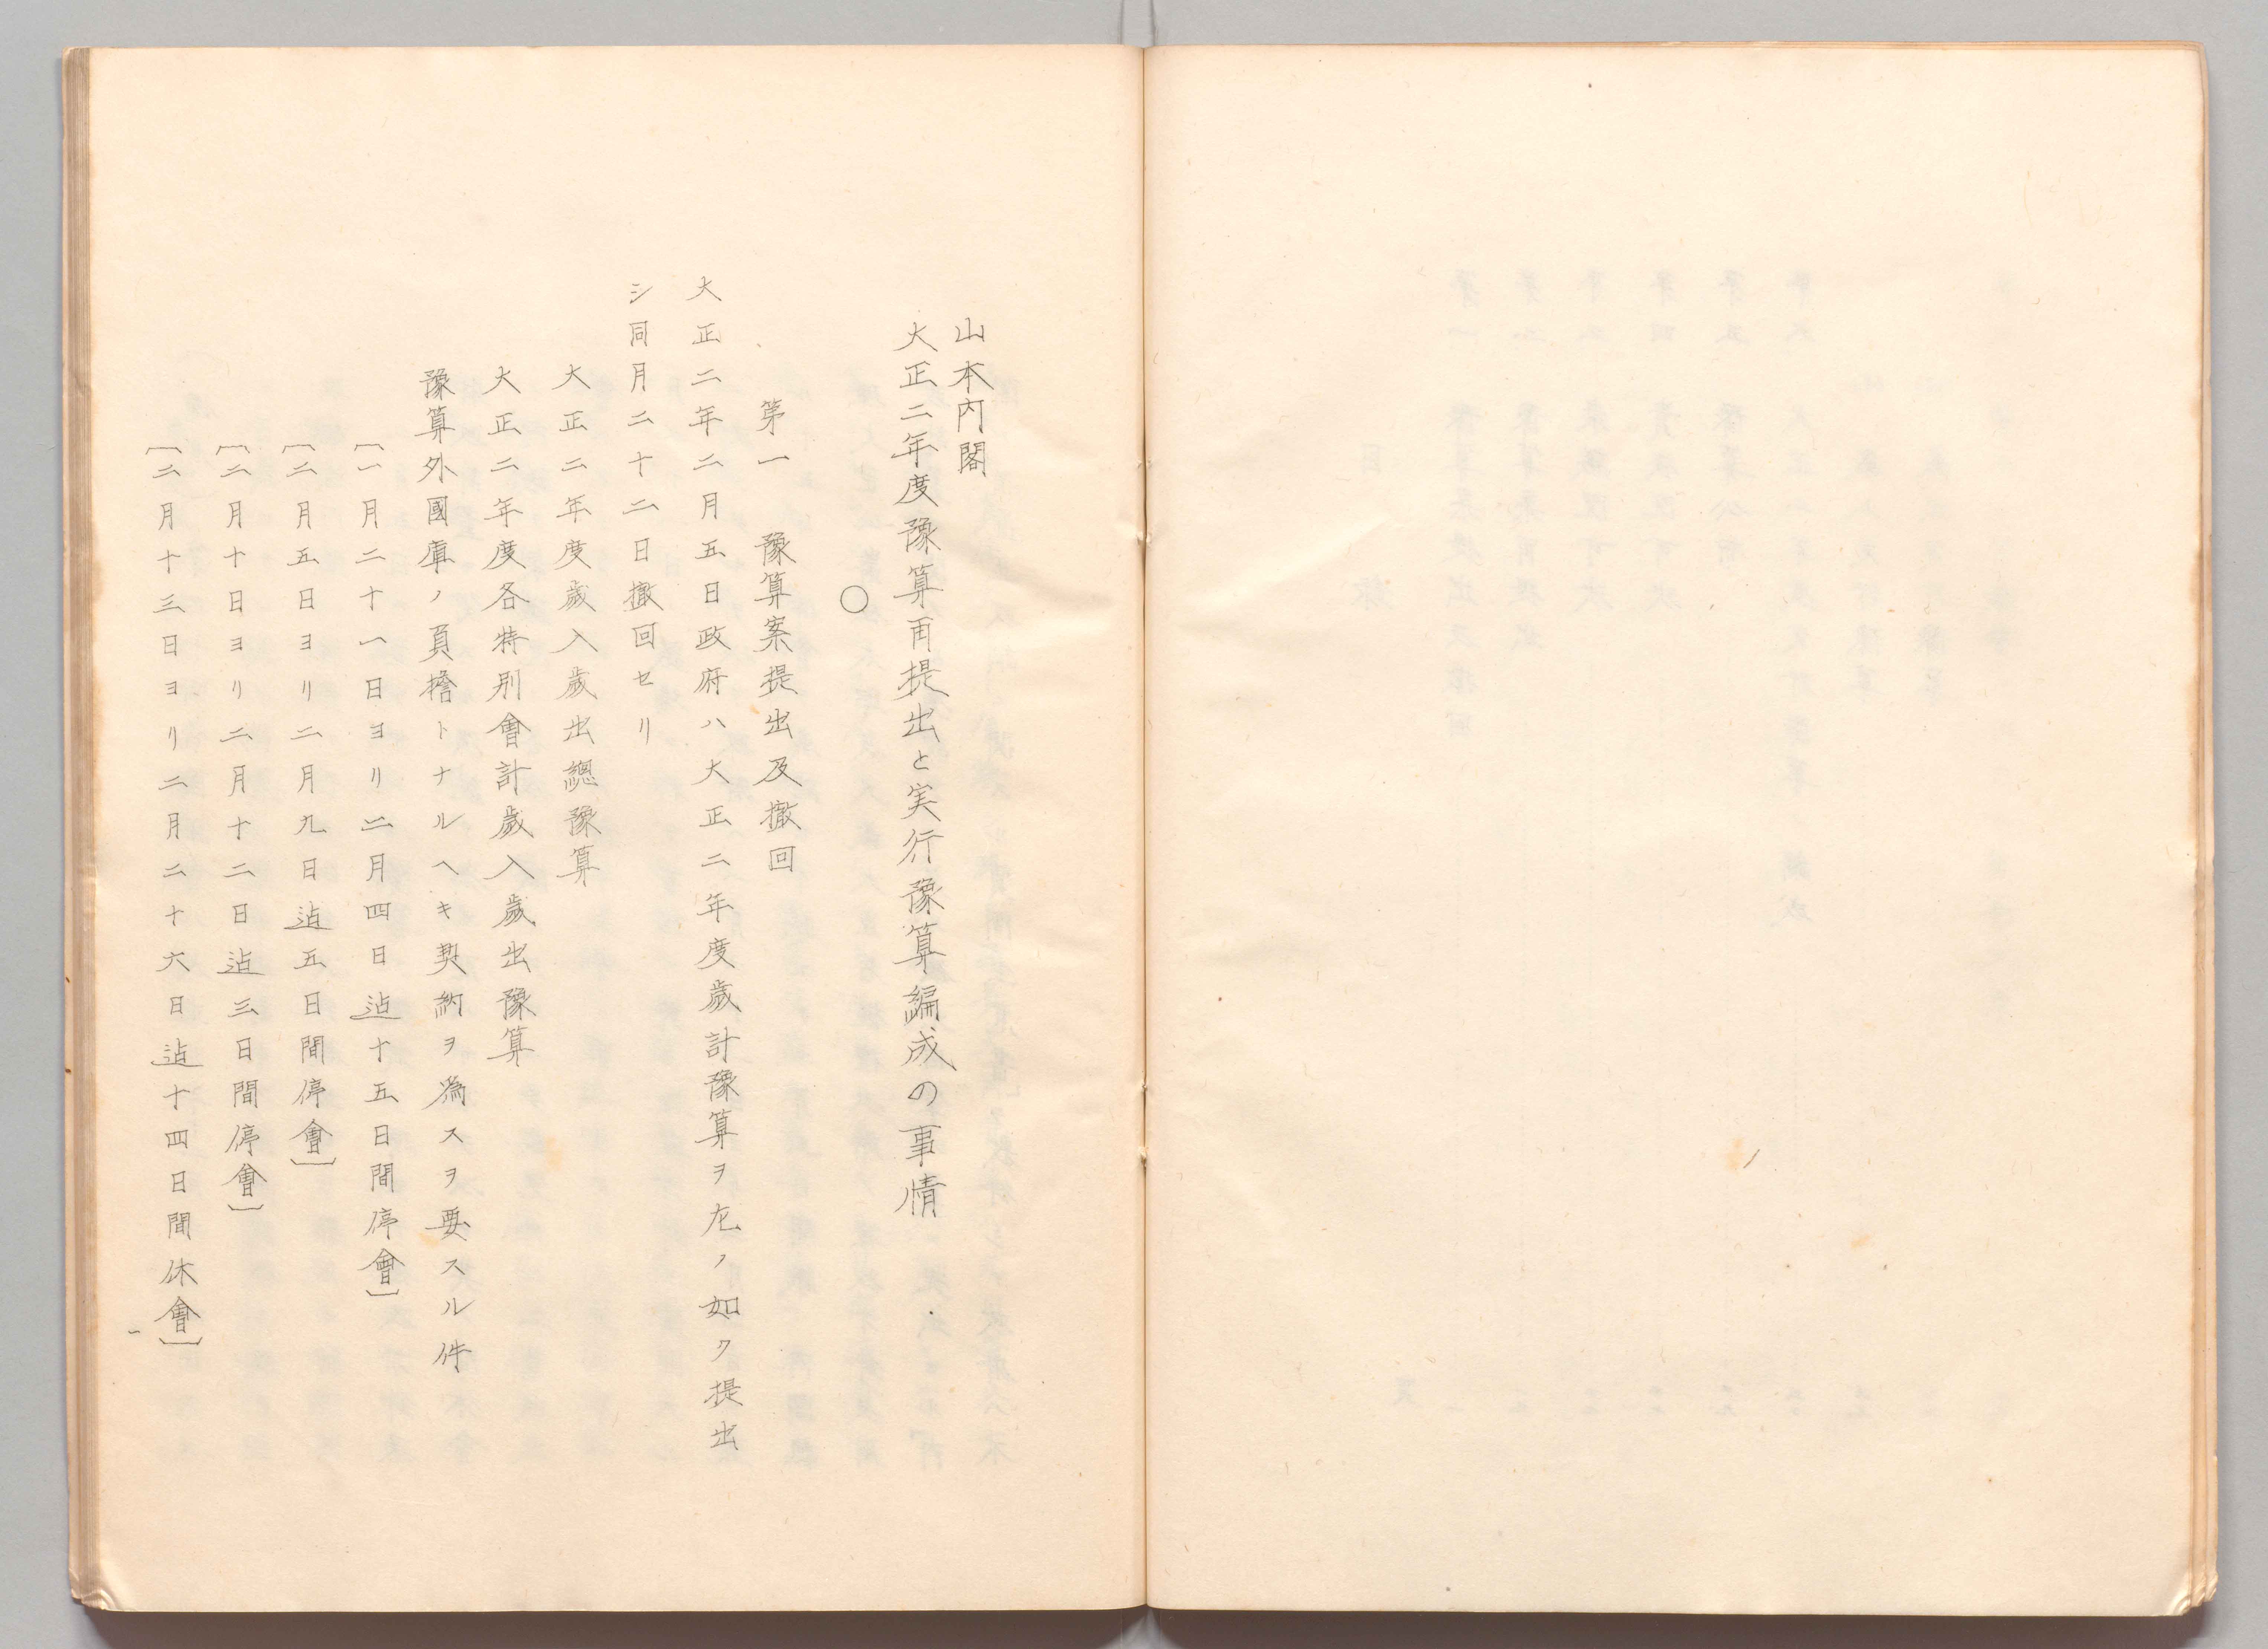 山本内閣
大正二年度豫算再提出と実行豫算編成の事情
○
第一　豫算案提出及撤回
大正二年二月五日政府ハ大正二年度歳計豫算ヲ左ノ如ク提出
シ同月二十二日撤回セリ
大正二年度歳入歳出總豫算
大正二年度各特別會計歳入歳出豫算
豫算外國庫ノ負擔トナルヘキ契約ヲ爲スヲ要スル件
〔一月二十一日ヨリ二月四日迠十五日間停會〕
〔二月五日ヨリ二月九日迠五日間停會〕
〔二月十日ヨリ二月十二日迠三日間停會〕
〔二月十三日ヨリ二月二十六日迠十四日間休會〕
一